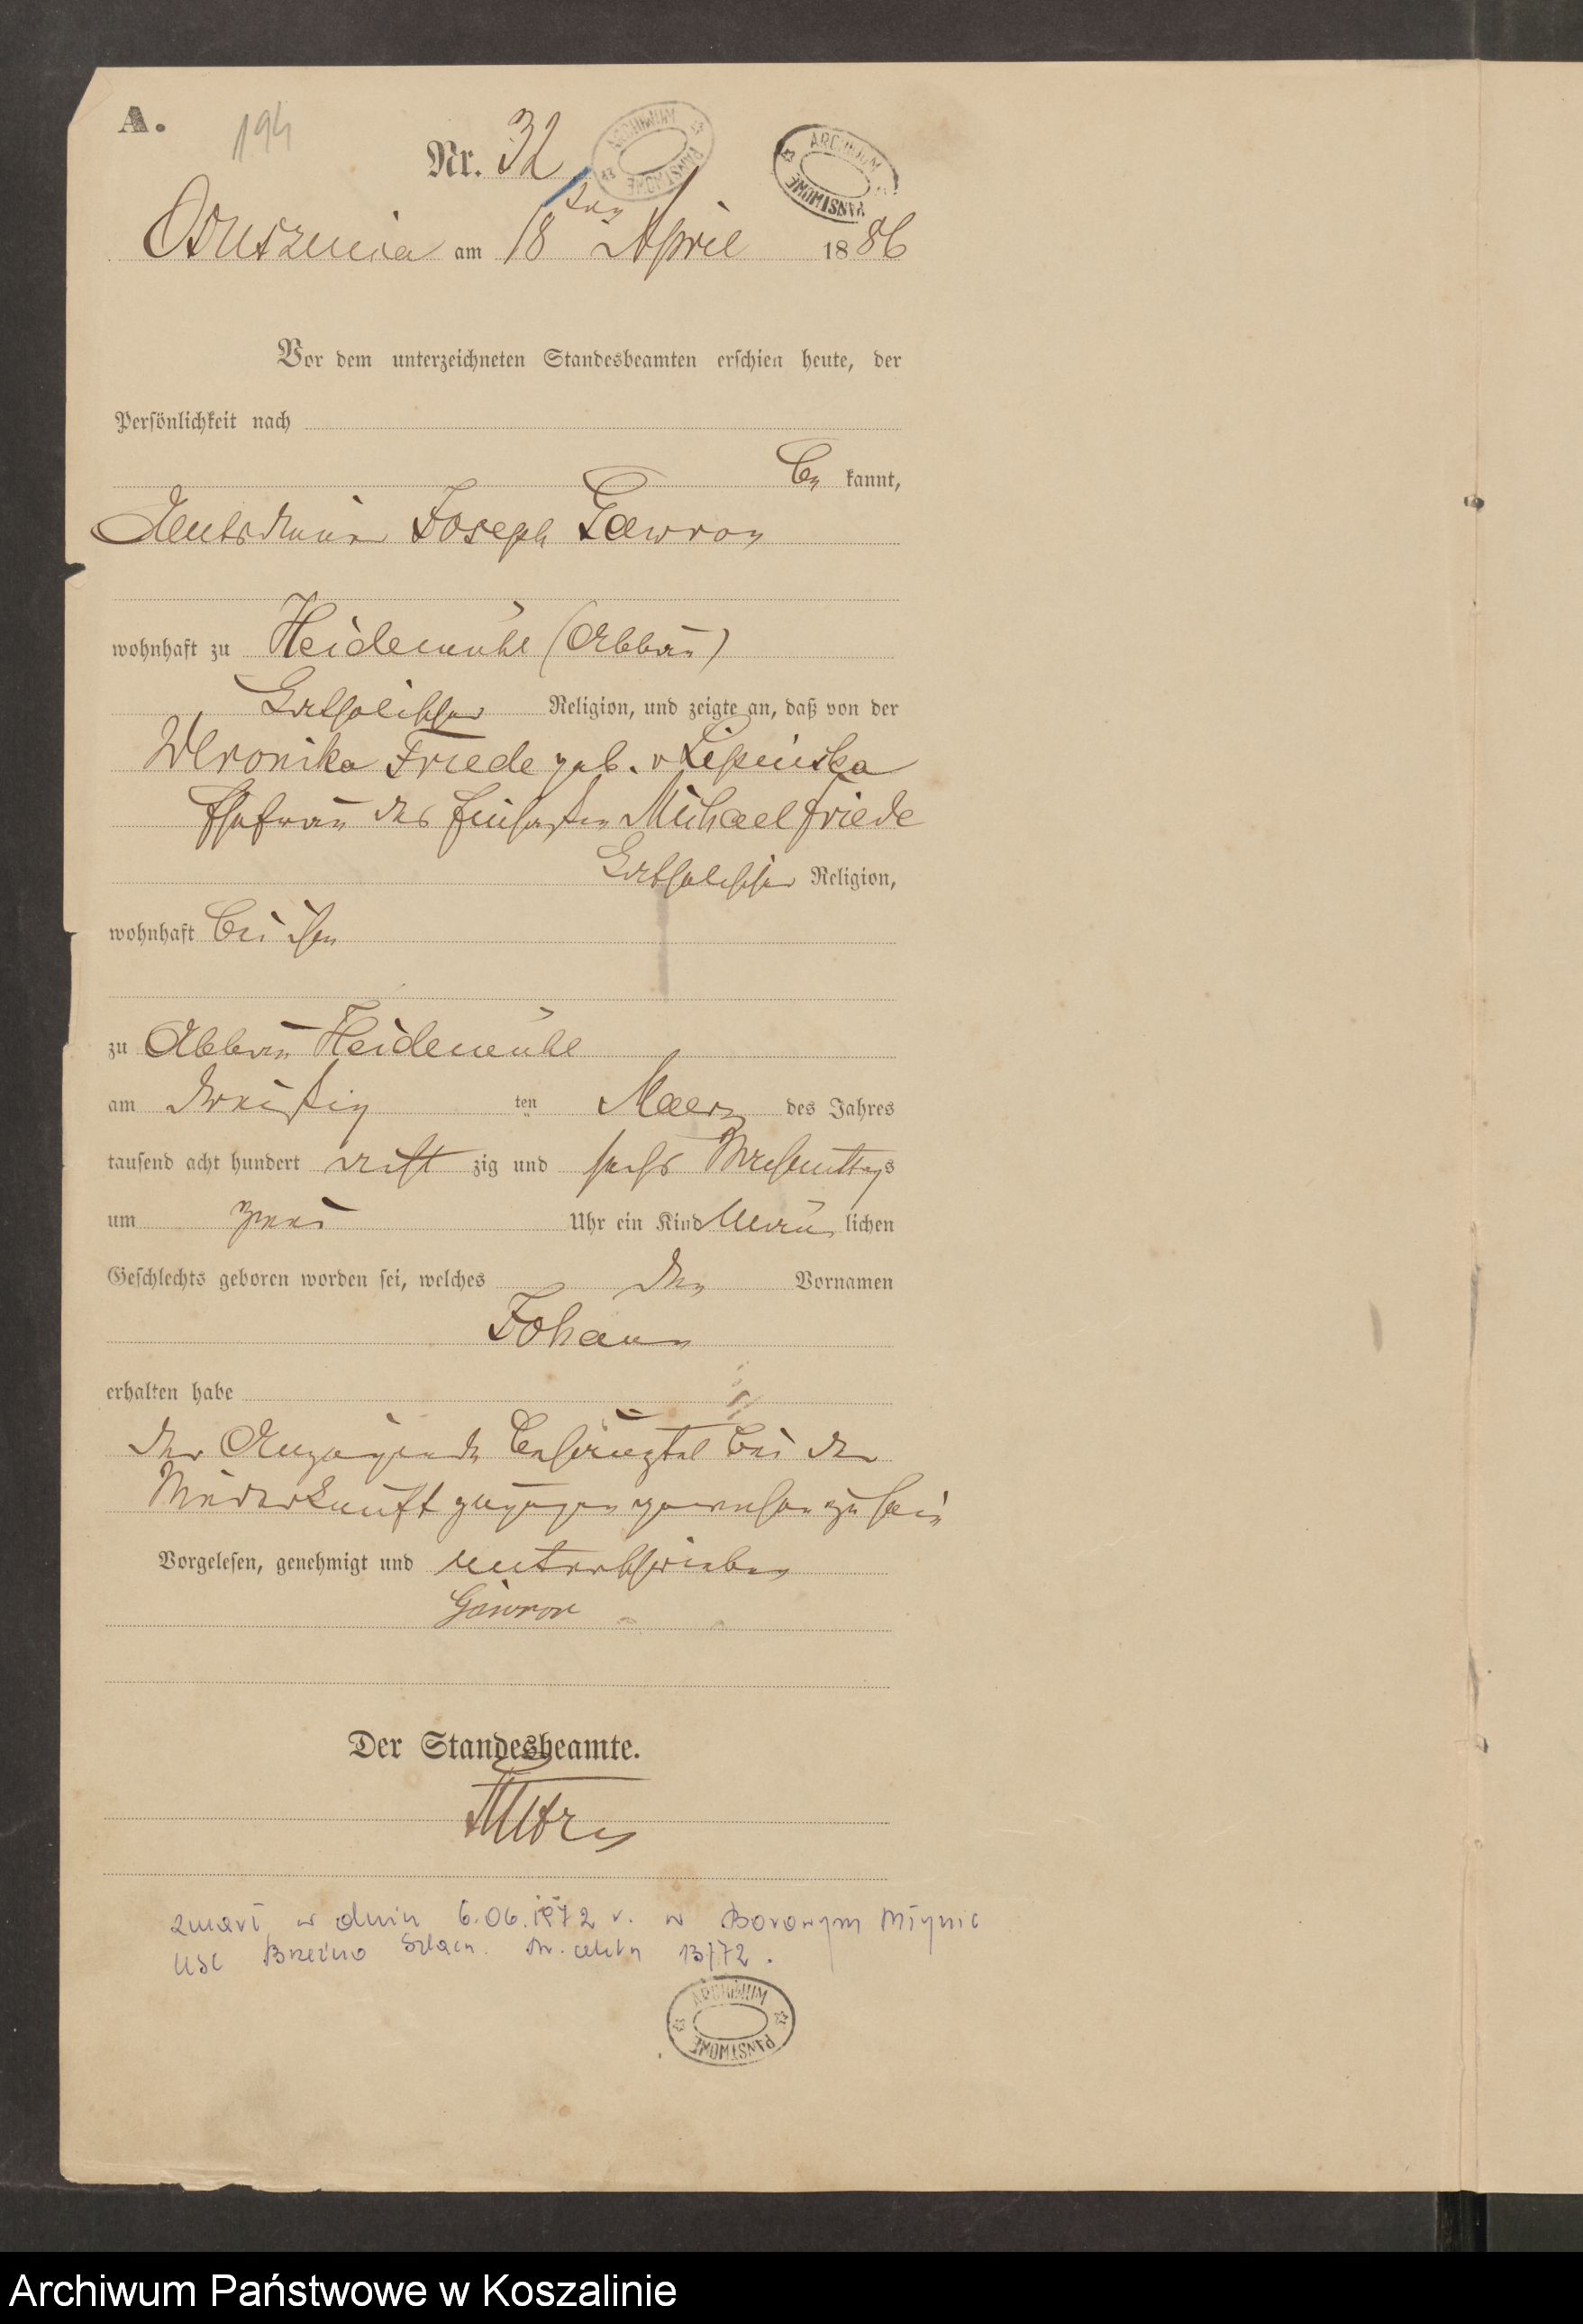 A.
194
Nr. 32
ARCHIWUM PAŃSTWOWE
ARCHIWUM PAŃSTWOWE
Osusznica am 18ten April 1886
Vor dem unterzeichneten Standesbeamten erschien heute, der
Persönlichkeit nach
be kannt,
Joseph Gawron
wohnhaft zu Heidemühl (Abbau)
katholischer Religion, und zeigte an, daß von der
Weronika Friede geb. v Lipinska
Ehefrau des Einsassen Michael Friede
katholischer Religion,
wohnhaft bei ihm
zu Abbau Heidemühl
am dreißig ten Maerz des Jahres
tausend acht hundert acht zig und sechs Nachmittags
um zwei Uhr ein Kind männ lichen
Geschlechts geboren worden sei, welches den Vornamen
Johann
erhalten habe
Der Anzeigende bei der
Niederkunft zugegen gewesen zu sein
Vorgelesen, genehmigt und unterschrieben
Gawron
Der Standesbeamte.
zmarł w dniu 6.06.1972 r. w Borowym Młynie
USC Brzeźno Szlach. Nr. aktu 13/72.
ARCHIWUM PAŃSTWOWE
Archiwum Państwowe w Koszalinie